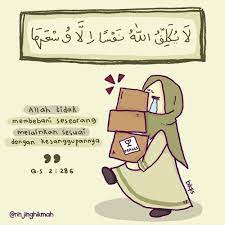 لَا يُكَلِّفُ اللّٰهُ نَفْسًا إِلَّا وُسْعَهَا
Allah tidak
membebani seseorang
melainkan sesuai
dengan kesanggupannya
Q.S 2 : 286
@rin_jinghikmah